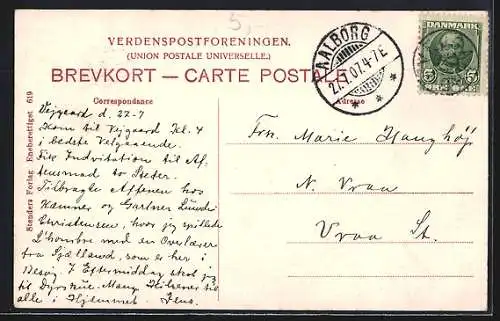 5,-
VERDENSPOSTFORENINGEN.
(UNION POSTALE UNIVERSELLE.)
BREVKORT — CARTE POSTALE
AALBORG
27.7.07.4-7E
DANMARK
5 5
Correspondance
Adresse
Stenders Forlag Eneberettiget 619
Vejgaard d. 22-7
Kom til Vejgaard Kl. 4
i bedste Velgaaende.
Fik Indvitation til Af-
tensmad to Steder.
Tilbragte Aftenen hos
og Gartner
Christensen, hvor jeg spillede
L'hombre med en Overlærer
fra Sjælland, som er her i
Besøg. I Eftermiddag skal jeg
til Dyrskue. Mang Hilsener til
alle i Hjemmet. Jens.
Frn. Marie
N. Vraa
Vraa St.